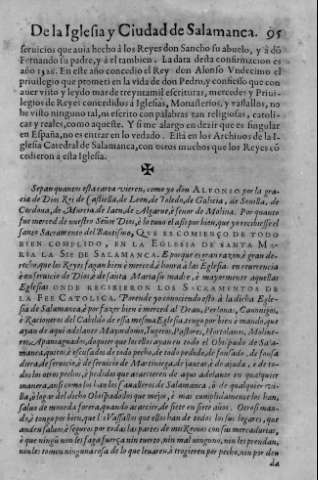 De la Iglesia y Ciudad de Salamanca. 95
seruicios que auia hecho à los Reyes don Sancho su abuelo, y à dõ
Fernando su padre, y à el tambien. La data desta confirmacion es
año 1326. En este año concedio el Rey don Alonso Vndecimo el
priuilegio que prometi en la vida de don Pedro, y confiesso que con
auer visto y leydo mas de treynta mil escrituras, mercedes y Priui-
legios de Reyes concedidos à Iglesias, Monasterios, y vassallos, no
he visto ninguno tal, ni escrito con palabras tan religiosas, catoli-
cas y reales, como aqueste. Y si me alargo en dezir que es singular
en España, no es entrar en lo vedado. Està en los Archiuos de la I-
glesia Catedral de Salamanca, con otros muchos que los Reyes cõ
cedieron à esta Iglesia.
✠
Sepan quantos esta carta vieren, como yo don ALFONSO por la gra-
cia de Dios Rei de Castiella, de Leon, de Toledo, de Galicia, de Seuilla, de
Cordoua, de Murcia, de Iaen, de Algarue, è senor de Molina. Por quanto
fue merced de nuestro Señor Dios, è lo tuuo el assi por bien, que yo recibiesse el
santo Sacramento del Bautismo, QVE ES COMIENÇO DE TODO
BIEN COMPLIDO, EN LA EGLESIA DE SANTA MA-
RIA LA SIE DE SALAMANCA. E porque es gran razon è gran dere-
cho, que los Reyes fagan bien è merced è honra à las Eglesias en reuerencia
è en seruicio de Dios, è de santa Maria su madre, è mayormente aquellas
Eglesias ONDE RECIBIERON LOS SACRAMENTOS DE
LA FEE CATOLICA. Porende yo conociendo esto à la dicha Egle-
sia de Salamanca è por fazer bien è merced al Dean, Personas, Canonigos,
è Racioneros del Cabildo de essa mesma Eglesia, tengo por bien è mando, que
ayan de aqui adelante Mayordomo, Iugeros, Pastores, Hortelanos, Moline-
ros, Apaniaguados, do quier que los ellos ayan en todo el Obispado de Sala-
manca, quitos è escusados de todo pecho, de todo pedido, de fonsado, de fonsa
dera, de seruicio, è de seruicio de Martiniega, de iantar, è de ayuda, è de to-
dos los otros pechos, è pedidos que acaecieren de aqui adelante en qualquier
manera, ansi como los han los Caualleros de Salamanca, è de qualquier vi-
lla, ò lugar del dicho Obispado los que mejor, è mas cumplidamente los han,
saluo de moneda forera, quando acaeciere, de siete en siete años. Otrosi man-
do, è tengo por bien, que los Vassallos que ellos han de todos los sus lugares, que
anden saluos, è seguros por todas las partes de mis Reynos con sus mercadurias,
è que ningũ non les faga fuerça nin tuerto, nin mal ninguno, nin les prendan,
nin les tomen ninguna cosa de lo que leuaren à trogieren por pecho, nin por den
da